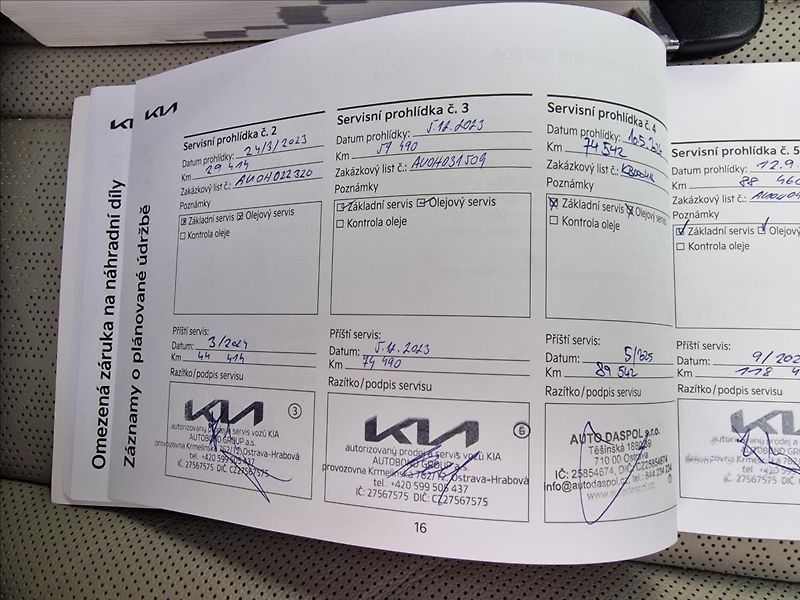 KIA
Omezená záruka na náhradní díly
Záznamy o plánované údržbě
Servisní prohlídka č. 2
Datum prohlídky: 24/3/2023
Km 29 414
Zakázkový list č.: AU0H022320
Poznámky
Základní servis Olejový servis
Kontrola oleje
Příští servis:
Datum: 3/2024
Km 44 414
Razítko/podpis servisu
3
KIA
autorizovaný prodej a servis vozů KIA
AUTOBOND GROUP a.s.
provozovna Krmelínská 762/12, Ostrava-Hrabová
tel. +420 599 505 437
IČ: 27567575 DIČ: CZ27567575
Servisní prohlídka č. 3
Datum prohlídky: 5.12.2023
Km 59 490
Zakázkový list č.: AU0H031509
Poznámky
Základní servis Olejový servis
Kontrola oleje
Příští servis:
Datum: 5.12.2023
Km 74 490
Razítko/podpis servisu
6
KIA
autorizovaný prodej a servis vozů KIA
AUTOBOND GROUP a.s.
provozovna Krmelínská 762/12, Ostrava-Hrabová
tel. +420 599 505 437
IČ: 27567575 DIČ: CZ27567575
Servisní prohlídka č. 4
Datum prohlídky:
Km 74 542
Zakázkový list č.:
Poznámky
Základní servis Olejový servis
Kontrola oleje
Příští servis:
Datum: 5/2025
Km 89 542
Razítko/podpis servisu
AUTO DASPOL s.r.o.
Těšínská
710 00 Ostrava
IČ: 25854674, DIČ: CZ25854674
info@autodaspol.cz, tel.: 844
www.autodaspol.cz
Servisní prohlídka č. 5
Datum prohlídky: 12.9.
Km 88 460
Zakázkový list č.:
Poznámky
Základní servis Olejový
Kontrola oleje
Příští servis:
Datum: 9/202
Km 118 4
Razítko/podpis servisu
KIA
IČ: 27567575
16